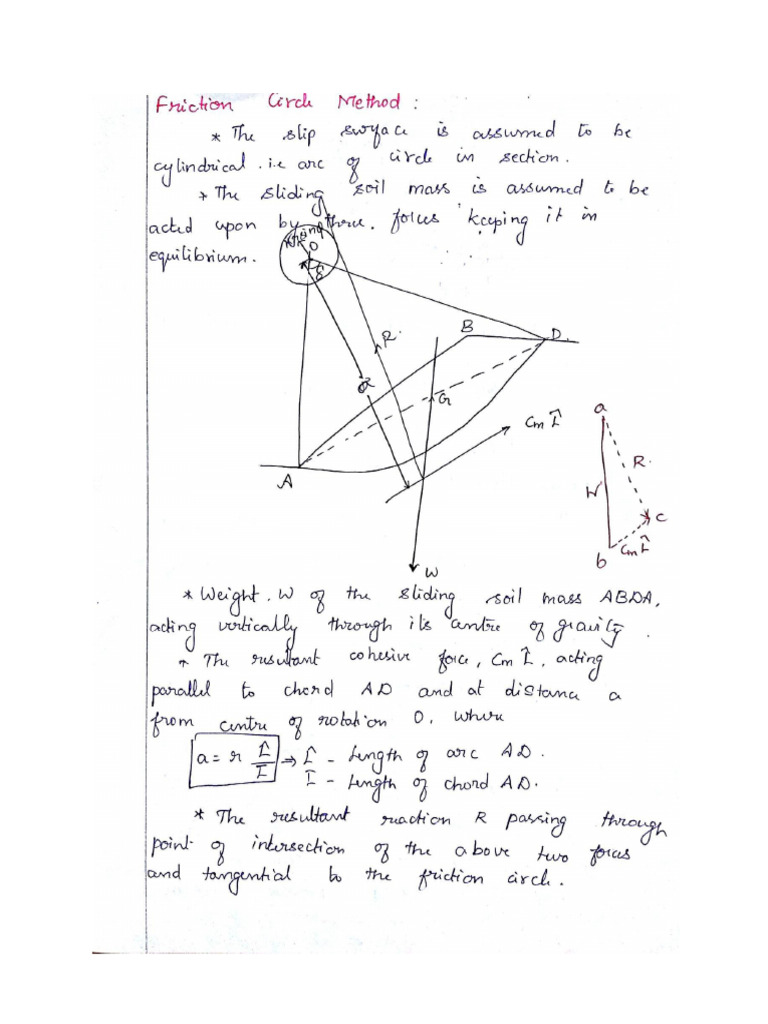 Friction Circle Method :
* The slip surface is assumed to be
cylindrical . i.e arc of circle in section.
* The sliding soil mass is assumed to be
acted upon by three. forces keeping it in
equilibrium.
O
R.
B
D
a
G
Cm L̂
A
W
a
R.
W
c
Cm L̂
b
* Weight . W of the sliding soil mass ABDA,
acting vertically through its centre of gravity .
* The resultant cohesive force, Cm L̂, acting
parallel to chord AD and at distance a
from centre of rotation O, where
a = r L̂/L̄ ⇒ L̂ - Length of arc AD.
L̄ - Length of chord AD.
* The resultant reaction R passing through
point of intersection of the above two forces
and tangential to the friction circle.